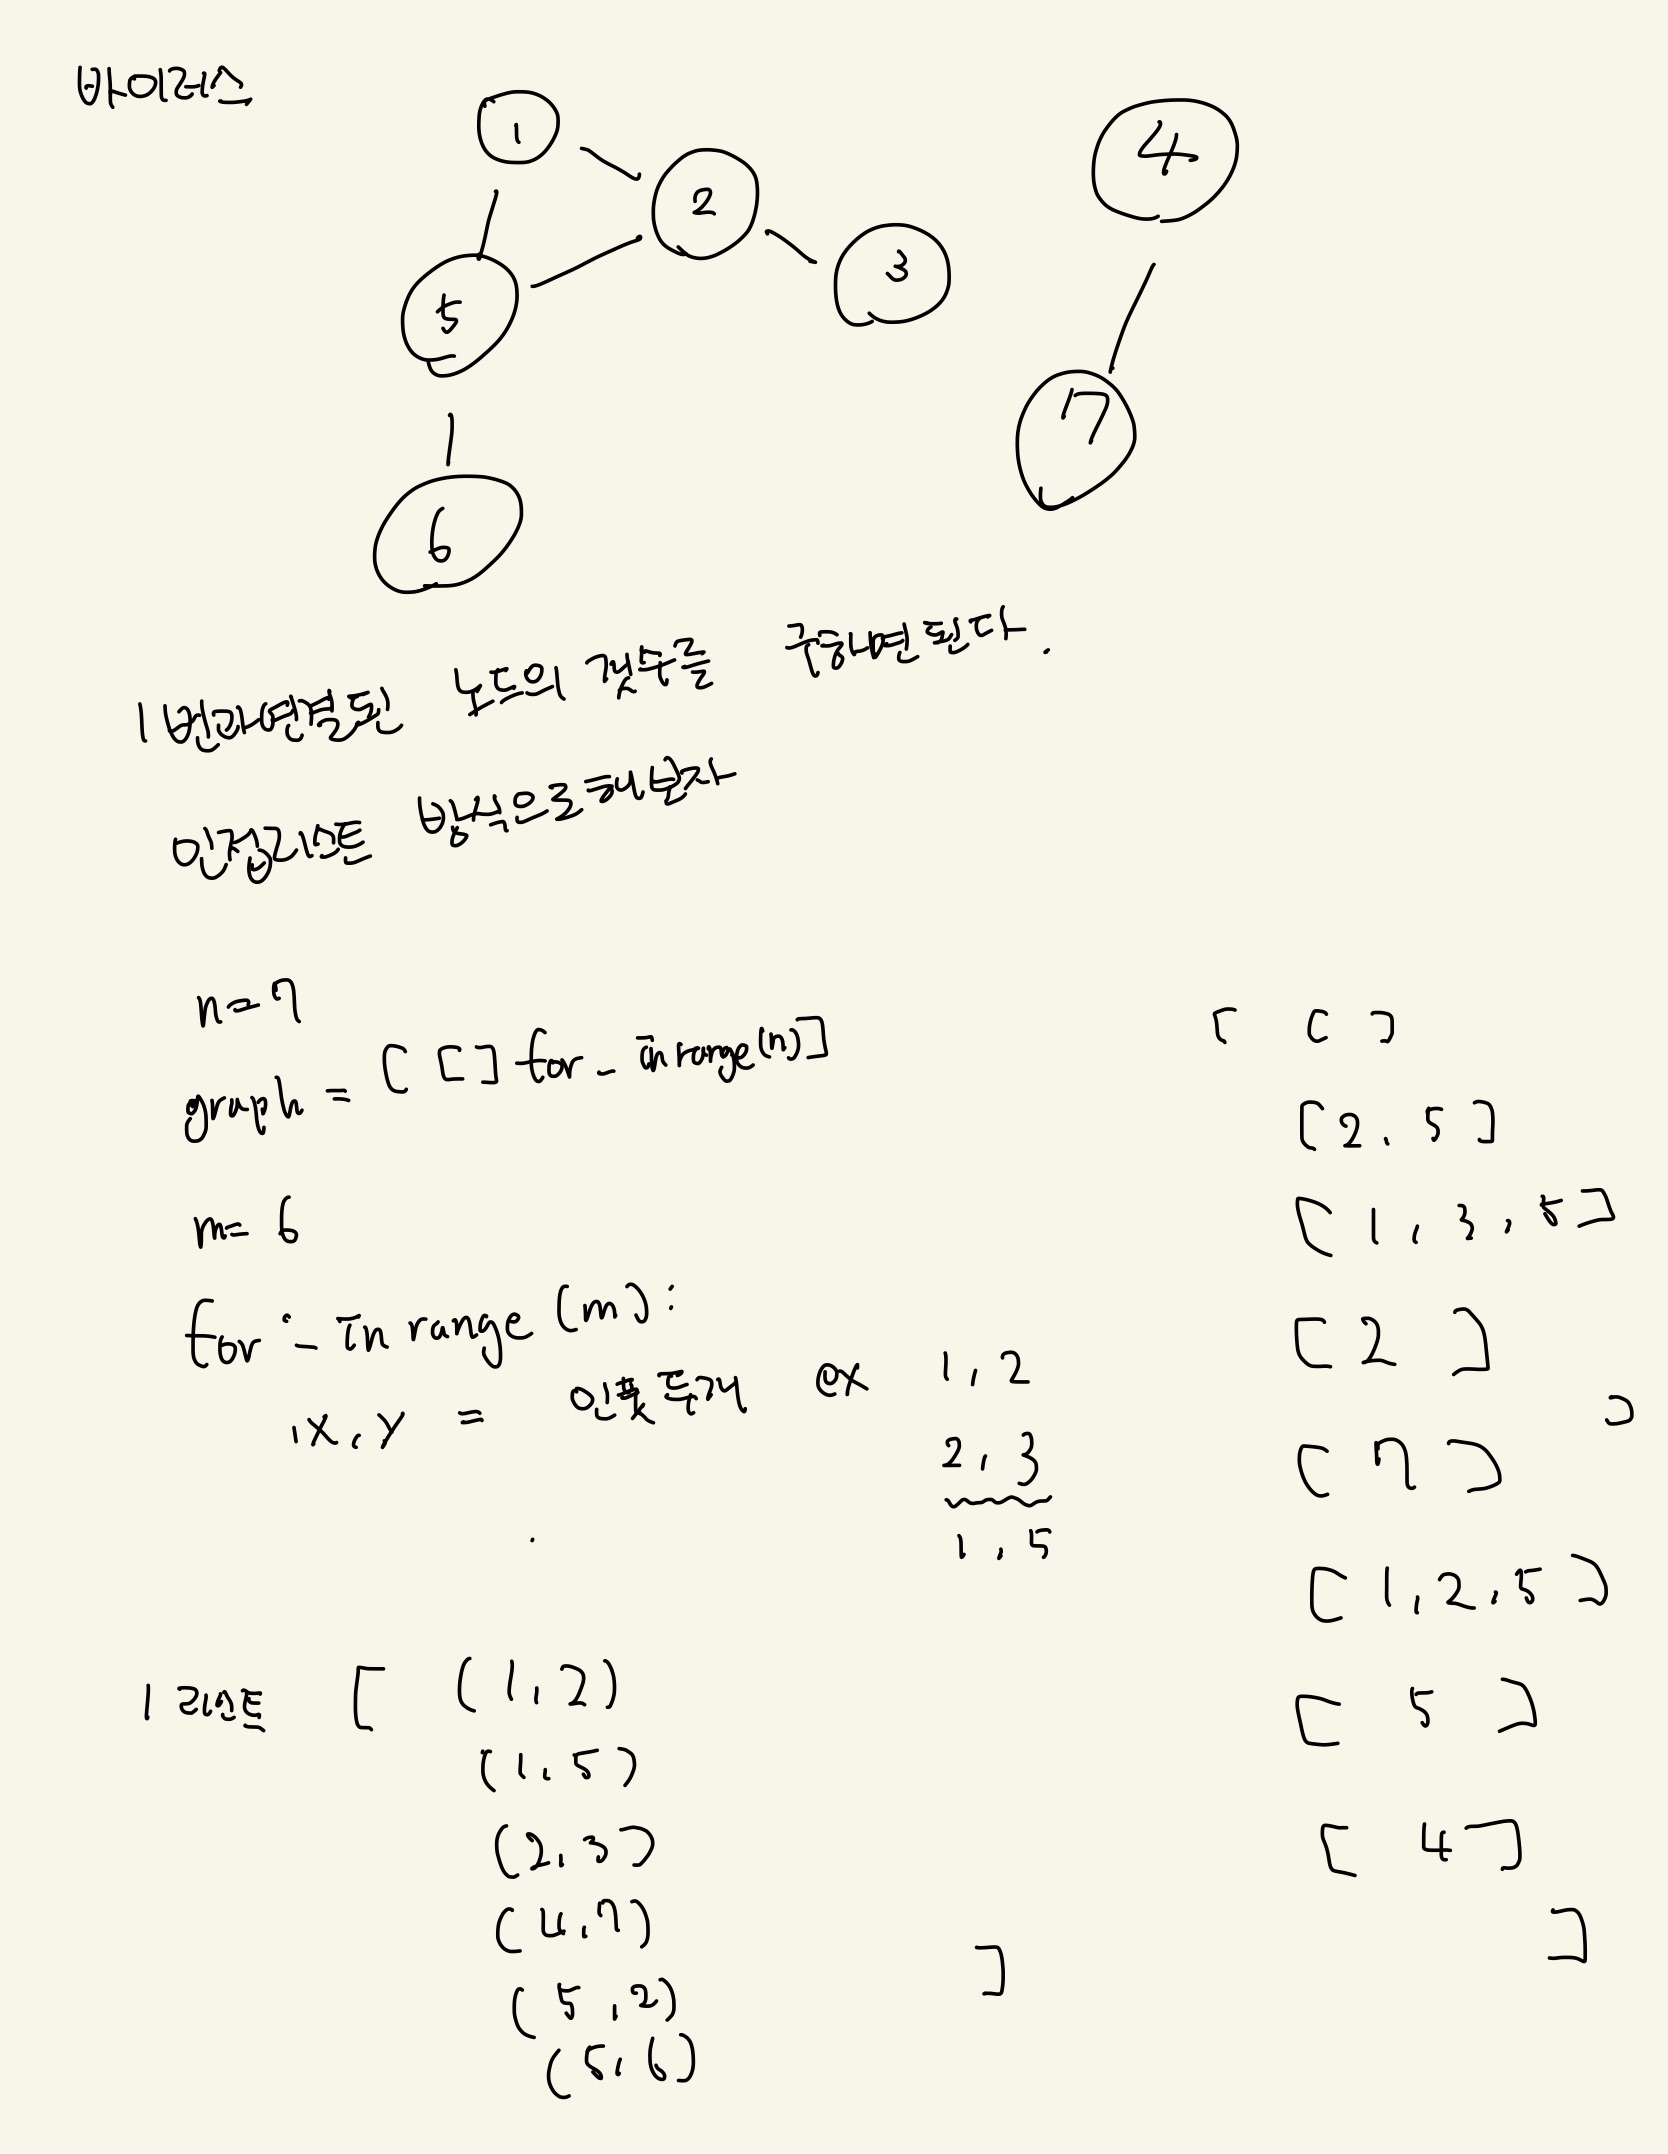 바이러스
1
2
3
4
5
7
6
1번과 연결된 노드의 갯수를 구하면 된다.
인접리스트 방식으로 해보자
n=7
graph = [ [] for _ in range(n)]
m= 6
for _ in range (m):
x, y = 인풋 두개 ex 1, 2
2, 3
1, 5
[ [ ]
[2, 5]
[ 1, 3, 5]
[ 2 ]
]
[ 7 ]
[ 1, 2, 5 ]
[ 5 ]
[ 4 ]
]
1 리스트 [ (1, 2)
(1, 5)
(2, 3)
(4, 7)
(5, 2)
(5, 6)
]